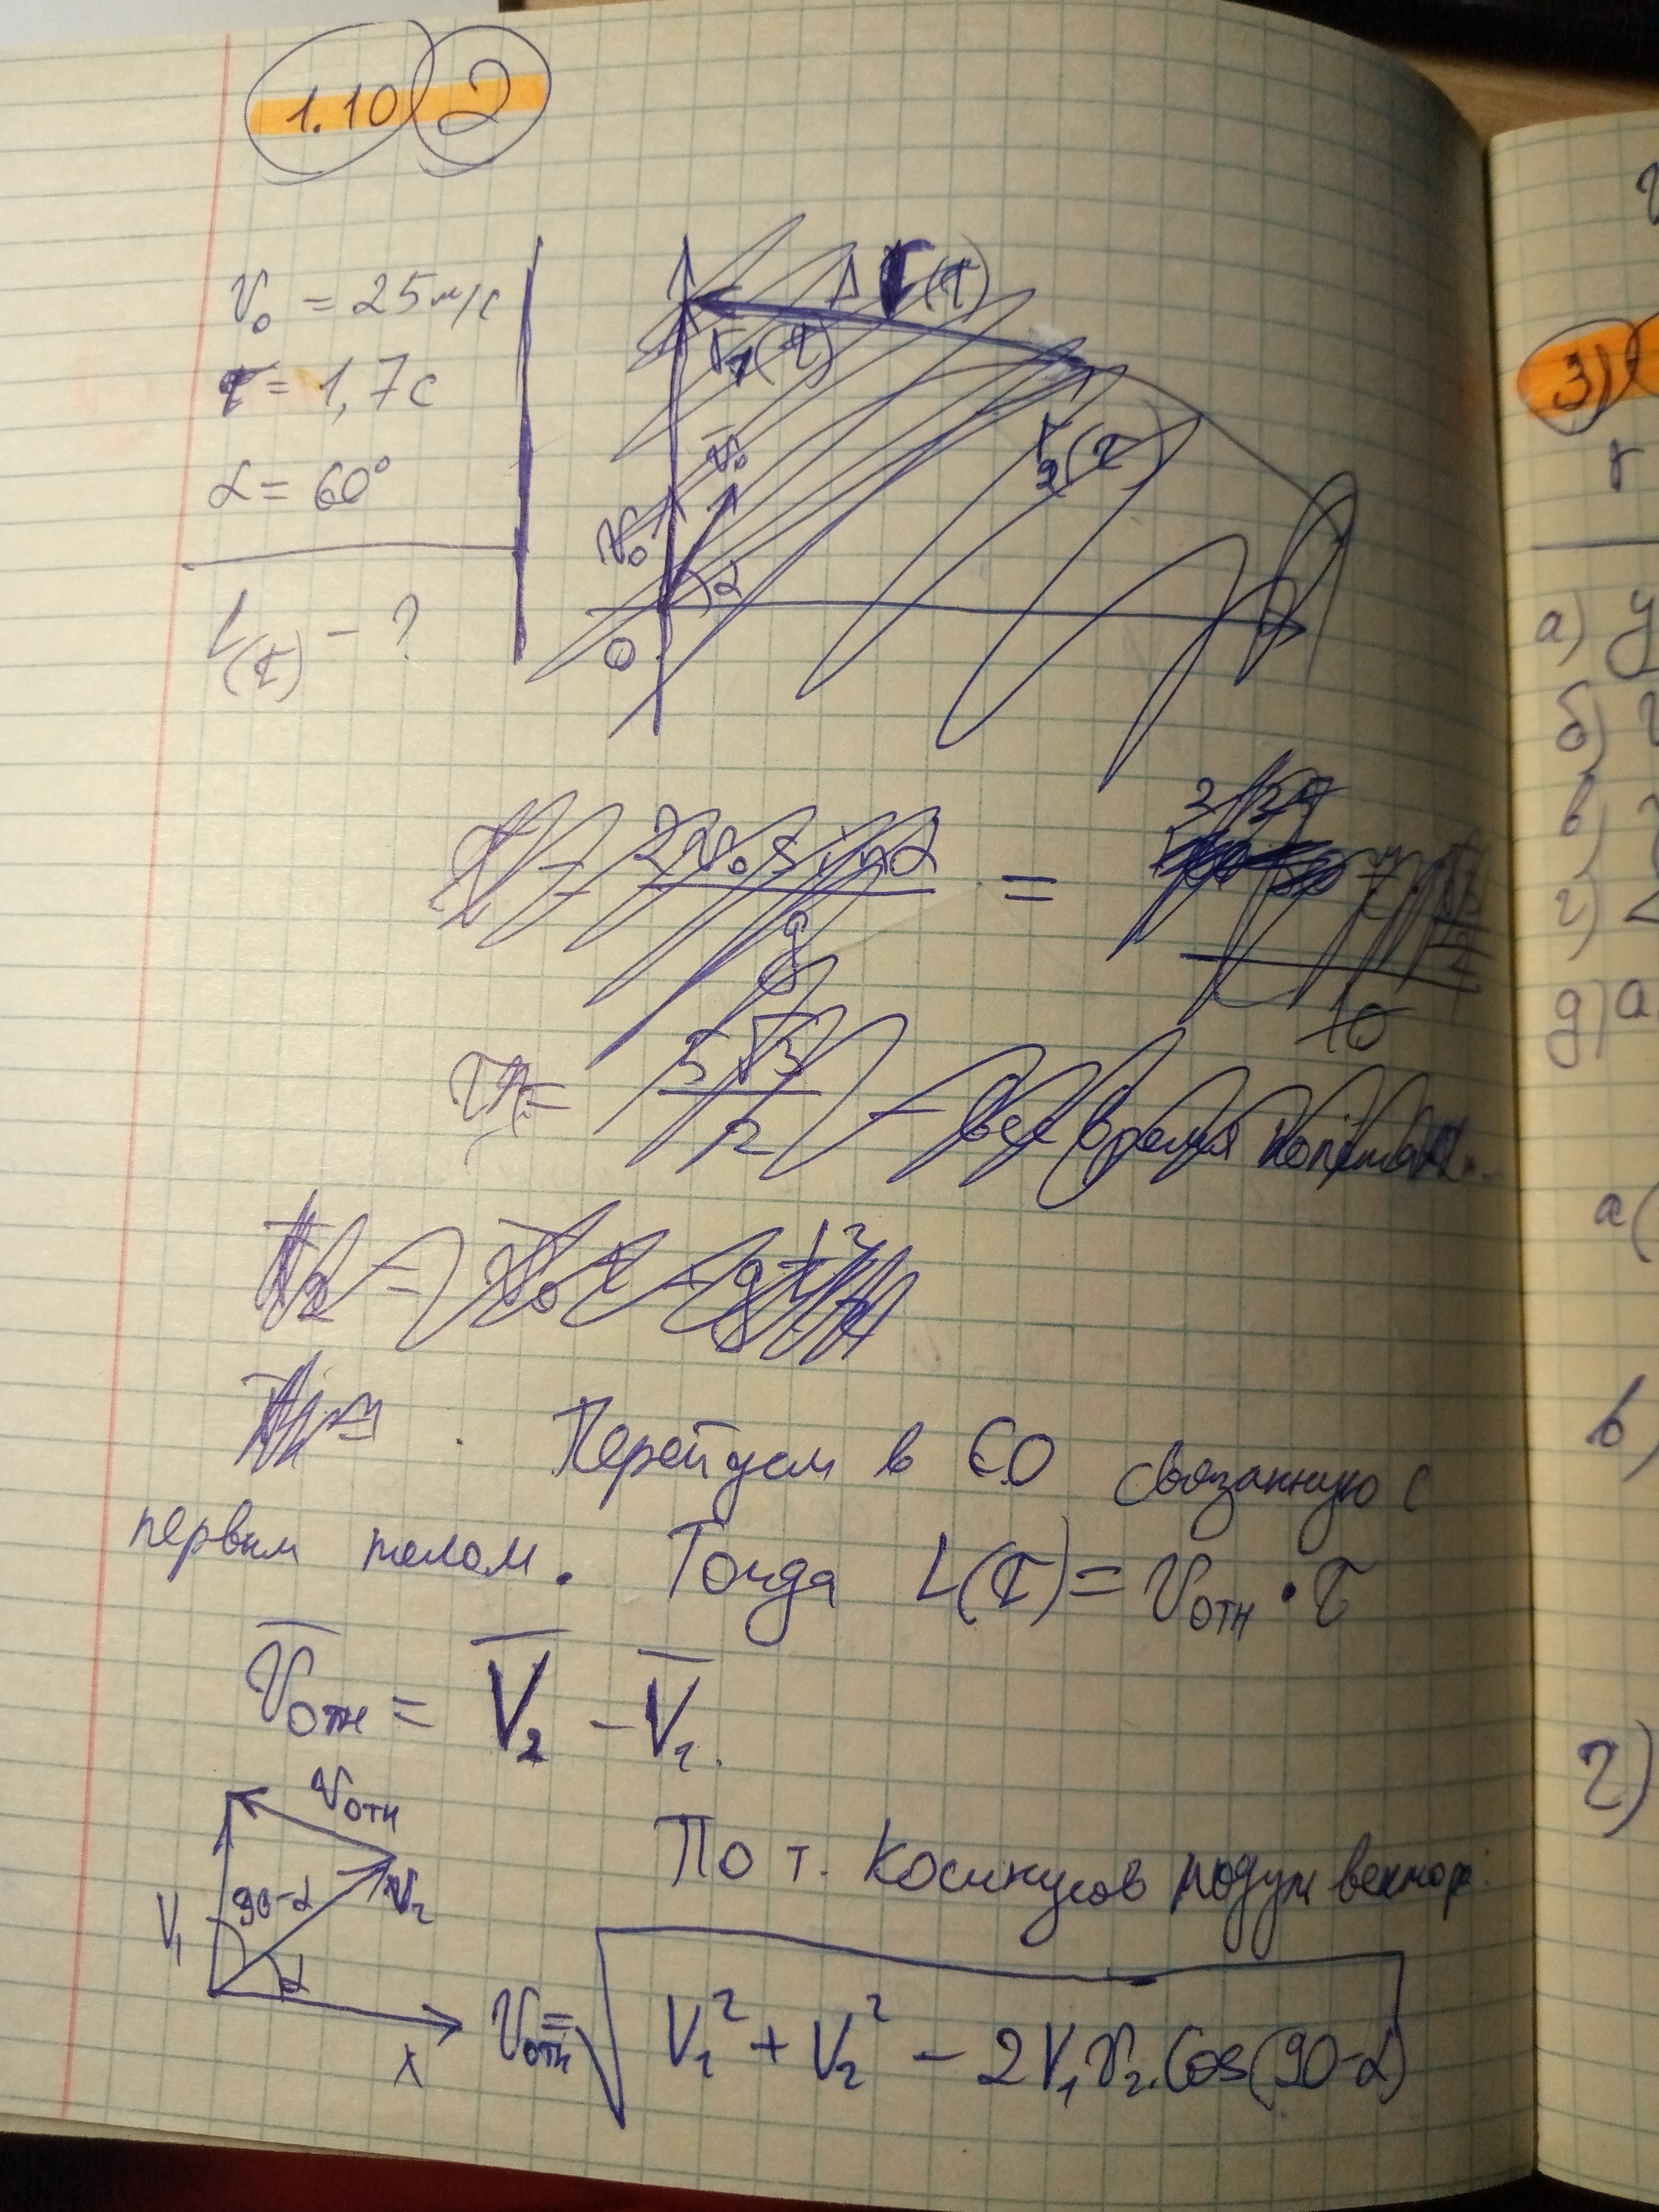 1.10 2
V₀ = 25 м/с
τ = 1,7 с
α = 60°
L(τ) - ?
Δ r(τ)
r₁(τ)
r₂(τ)
V̅₀
V₀
α
0
2V₀ sin α
g
=
10
5√3
2
- все время
V̅₀τ - g
Перейдем в СО связанную с
первым телом. Тогда L(τ) = Vотн · τ
V̅отн = V̅₂ - V̅₁.
Vотн
V₁
90-α
V₂
α
x
По т. Косинусов модуль вектора:
Vотн = √(V₁² + V₂² - 2V₁V₂·Cos(90-α))
3)
r
а) y
б)
в)
г)
д) a
a(
в)
г)